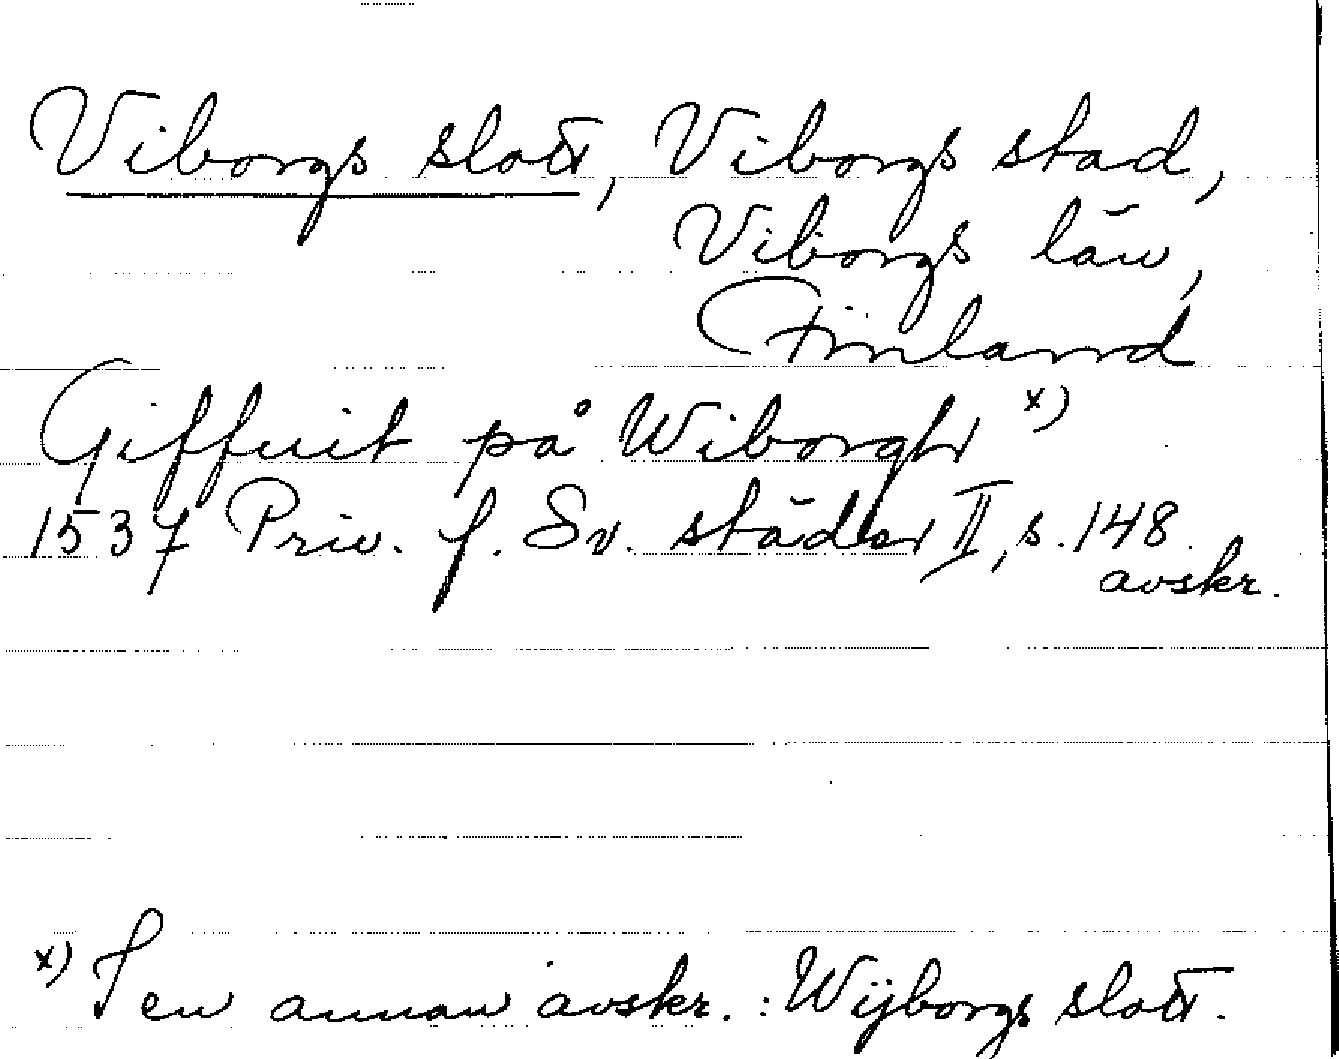 Viborgs slott, Viborgs stad,
Viborgs län,
Finland
Giffuit på Wiborgh x)
1537 Priv. f. Sv. städer II, s. 148
avskr.
x) I en annan avskr. : Wijborgs slott.